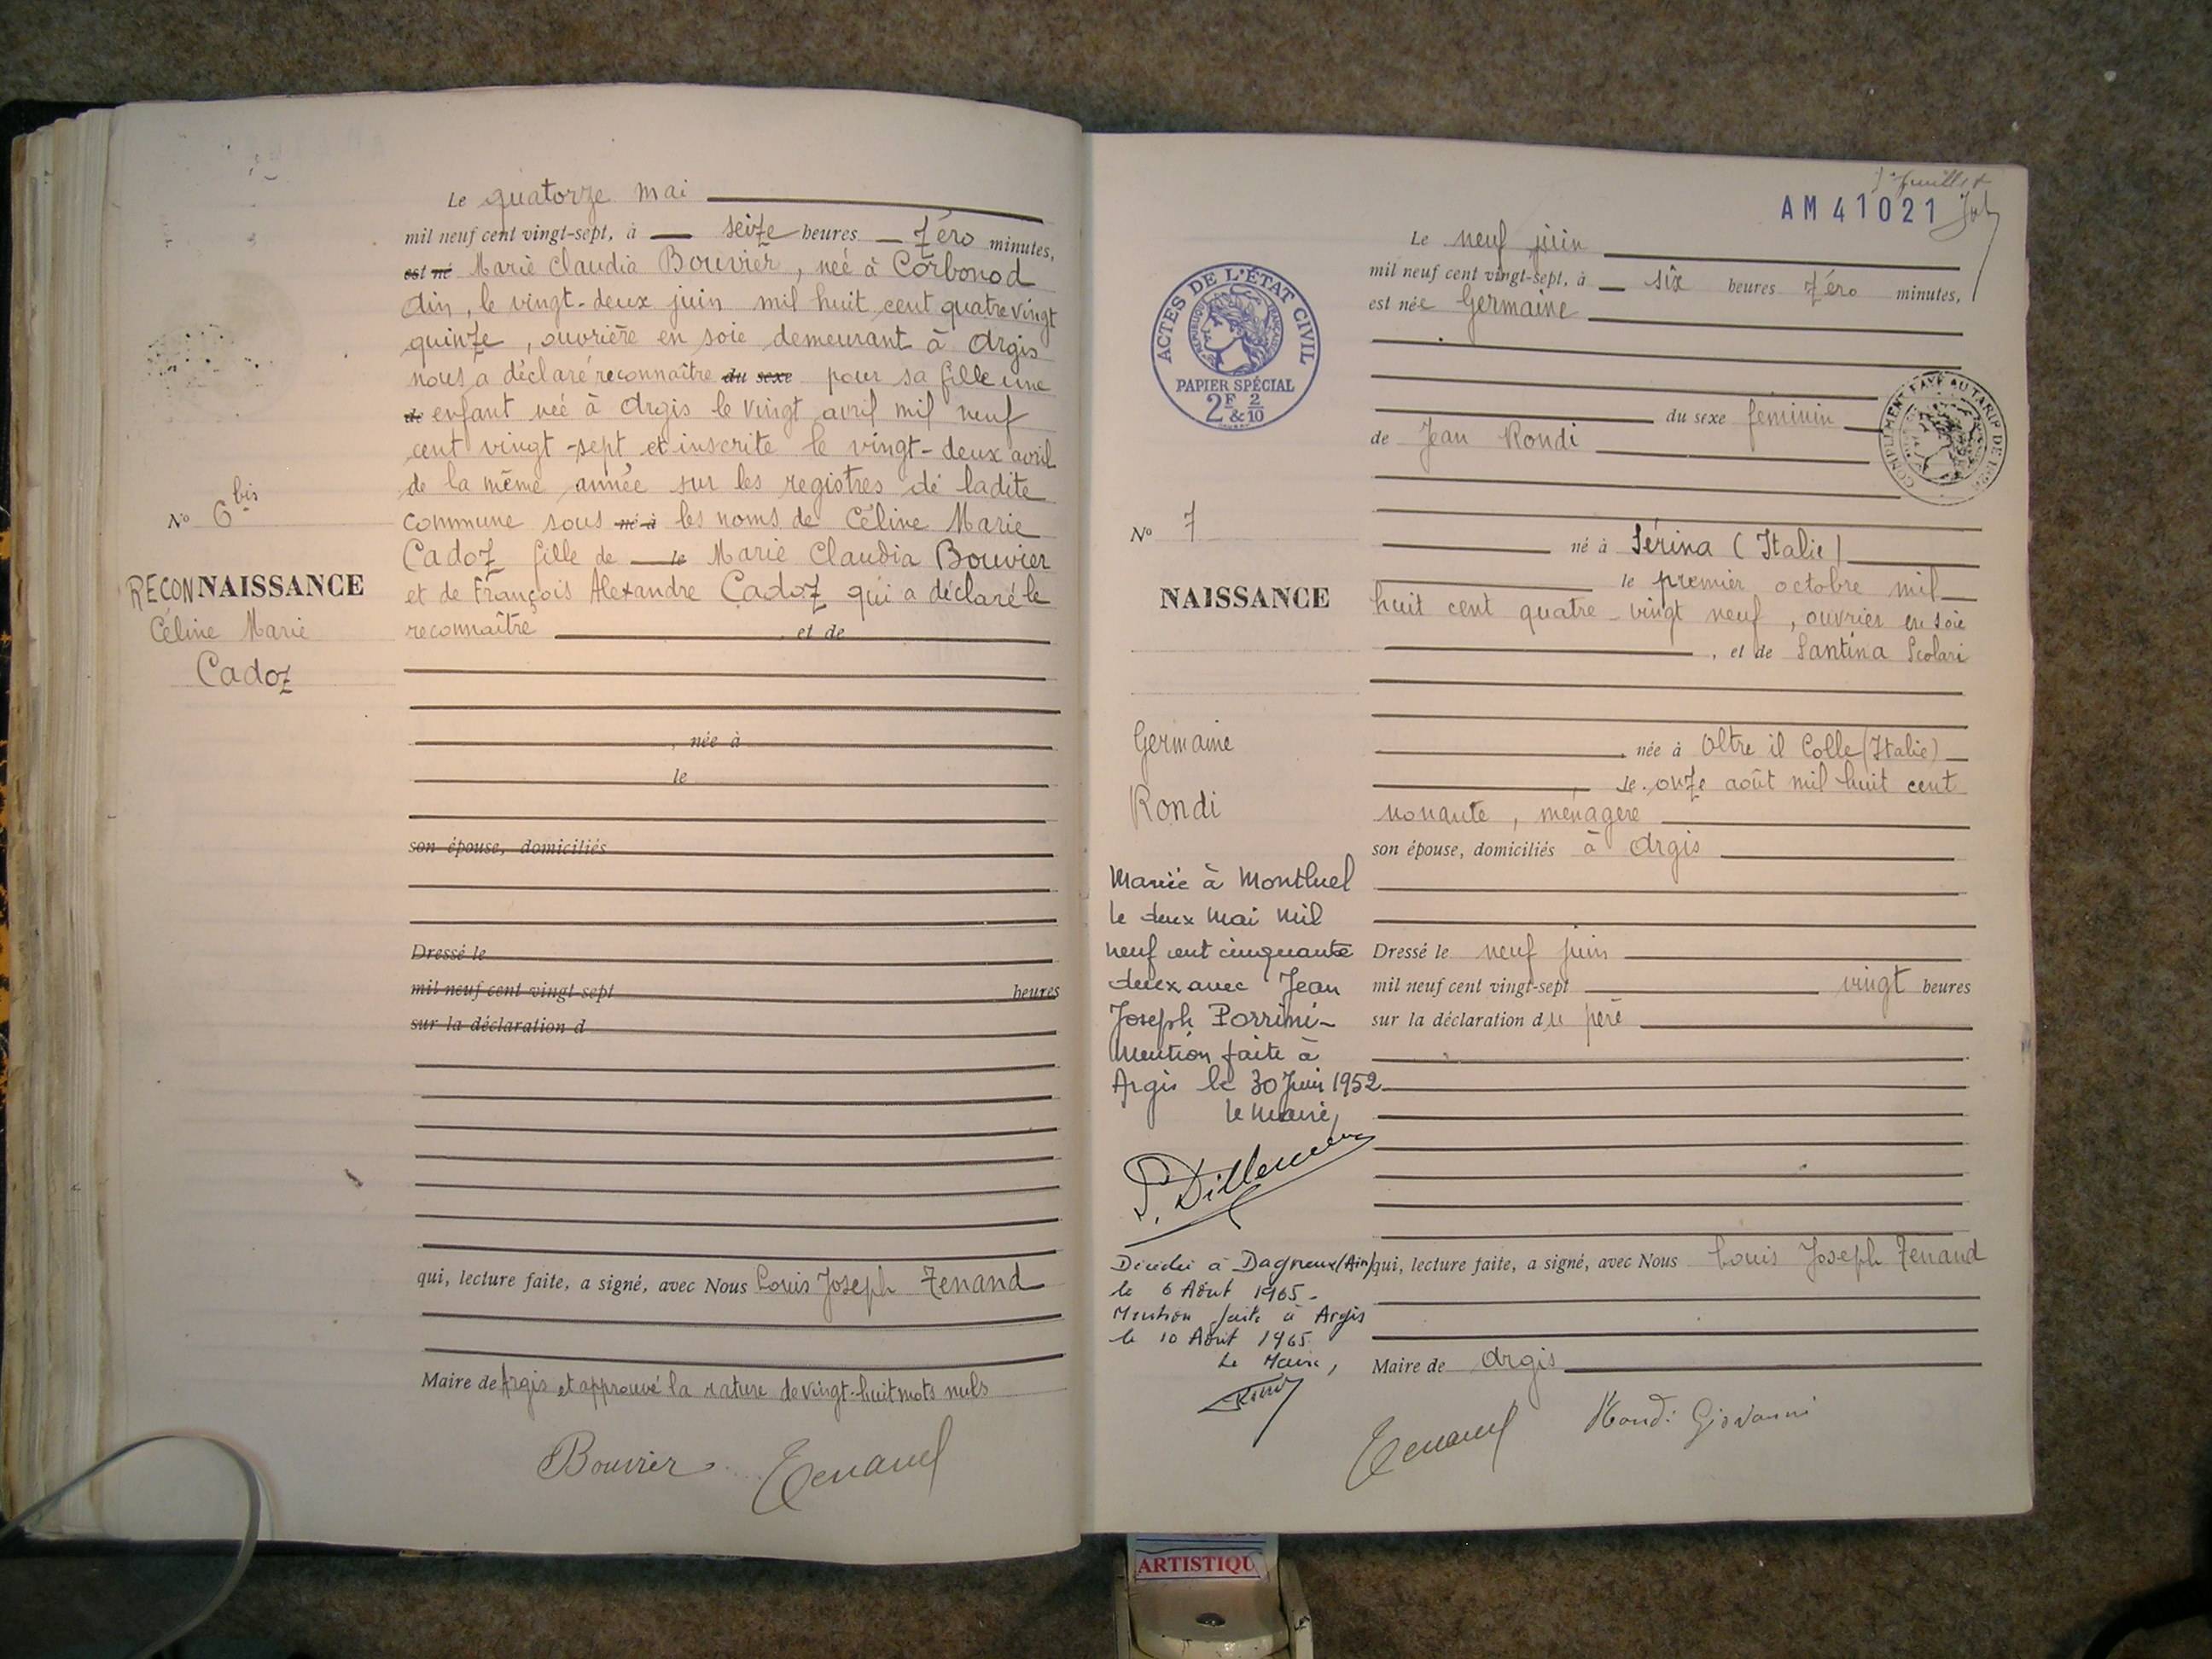 Le quatorze mai
mil neuf cent vingt-sept, à seize heures zéro minutes,
est né Marie Claudia Bouvier, née à Corbonod
Ain, le vingt-deux juin mil huit cent quatre vingt
quinze, ouvrière en soie demeurant à Argis
nous a déclaré reconnaître du sexe pour sa fille une
de enfant née à Argis le vingt avril mil neuf
cent vingt-sept et inscrite le vingt-deux avril
de la même année sur les registres de ladite
commune sous né à les noms de Céline Marie
Cadoz fille de le Marie Claudia Bouvier
et de François Alexandre Cadoz qui a déclaré le
reconnaître et de
, née à
le
son épouse, domiciliés
Dressé le
mil neuf cent vingt-sept heures
sur la déclaration d
qui, lecture faite, a signé, avec Nous Louis Joseph Tenand
Maire de Argis et approuvé la rature de vingt-huit mots nuls
Bouvier Tenand
N° 6 bis
RECONNAISSANCE
Céline Marie
Cadoz
AM 41021
ACTES DE L'ÉTAT CIVIL
RÉPUBLIQUE FRANÇAISE
PAPIER SPÉCIAL
2F & 2/10
COMPLÉMENT PAYÉ AU TARIF DE
Le neuf juin
mil neuf cent vingt-sept, à six heures zéro minutes,
est née Germaine
du sexe féminin
de Jean Rondi
né à Sérina (Italie)
le premier octobre mil
huit cent quatre-vingt neuf, ouvrier en soie
, et de Santina Scolari
née à Oltre il Colle (Italie)
le onze août mil huit cent
nonante, ménagère
son épouse, domiciliés à Argis
Dressé le neuf juin
mil neuf cent vingt-sept vingt heures
sur la déclaration du père
qui, lecture faite, a signé, avec Nous Louis Joseph Tenand
Maire de Argis
Tenand Rondi Giovanni
N° 7
NAISSANCE
Germaine
Rondi
Mariée à Montluel
le deux Mai Mil
neuf cent cinquante
deux avec Jean
Joseph Porrini-
Mention faite à
Argis le 30 Juin 1952
le Maire,
Décédée à Dagneux (Ain)
le 6 Août 1965-
Mention faite à Argis
le 10 Août 1965
Le Maire,
ARTISTIQU